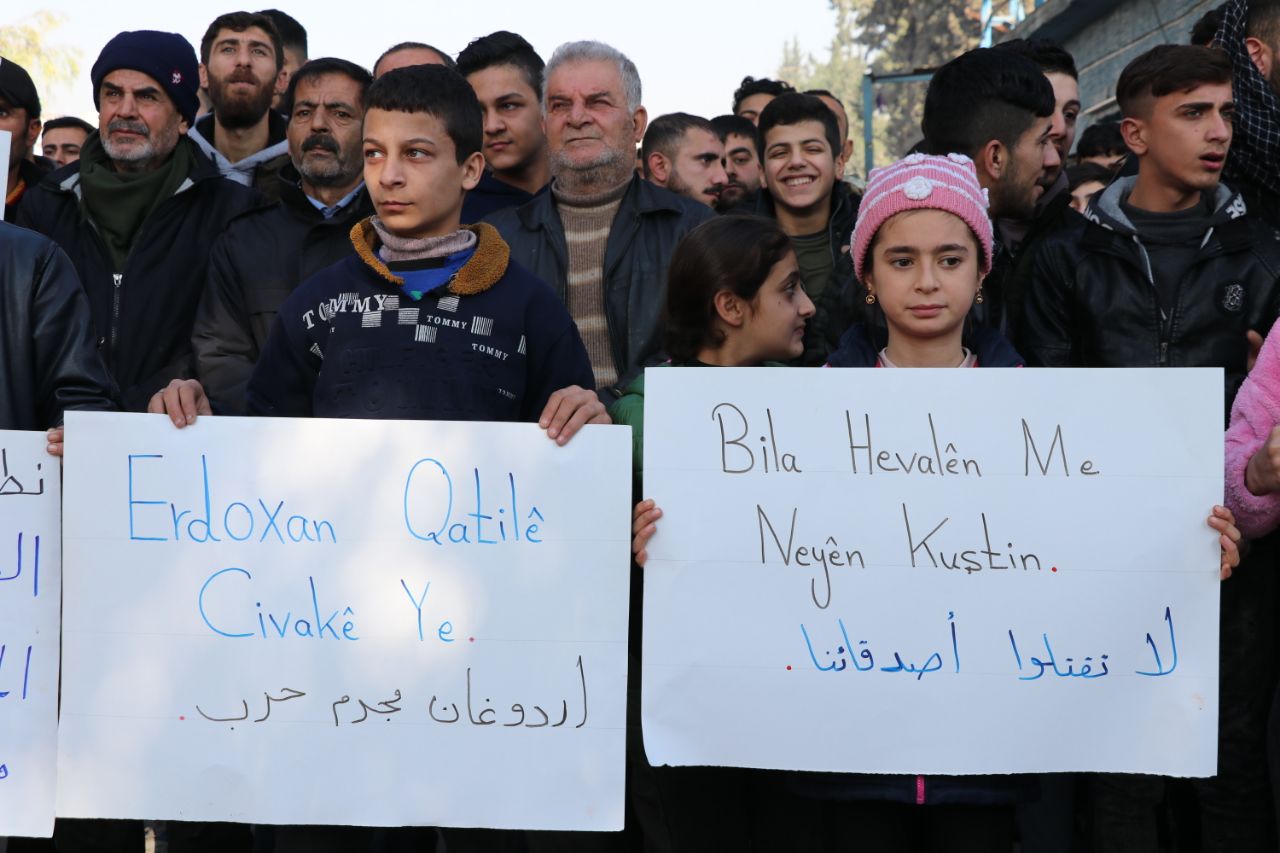 Erdoxan Qatilê
Civakê Ye.
اردوغان مجرم حرب.
Bila Hevalên Me
Neyên Kuştin.
لا تقتلوا أصدقائنا.
TOMMY
TOMMY
TOMMY
TOMMY